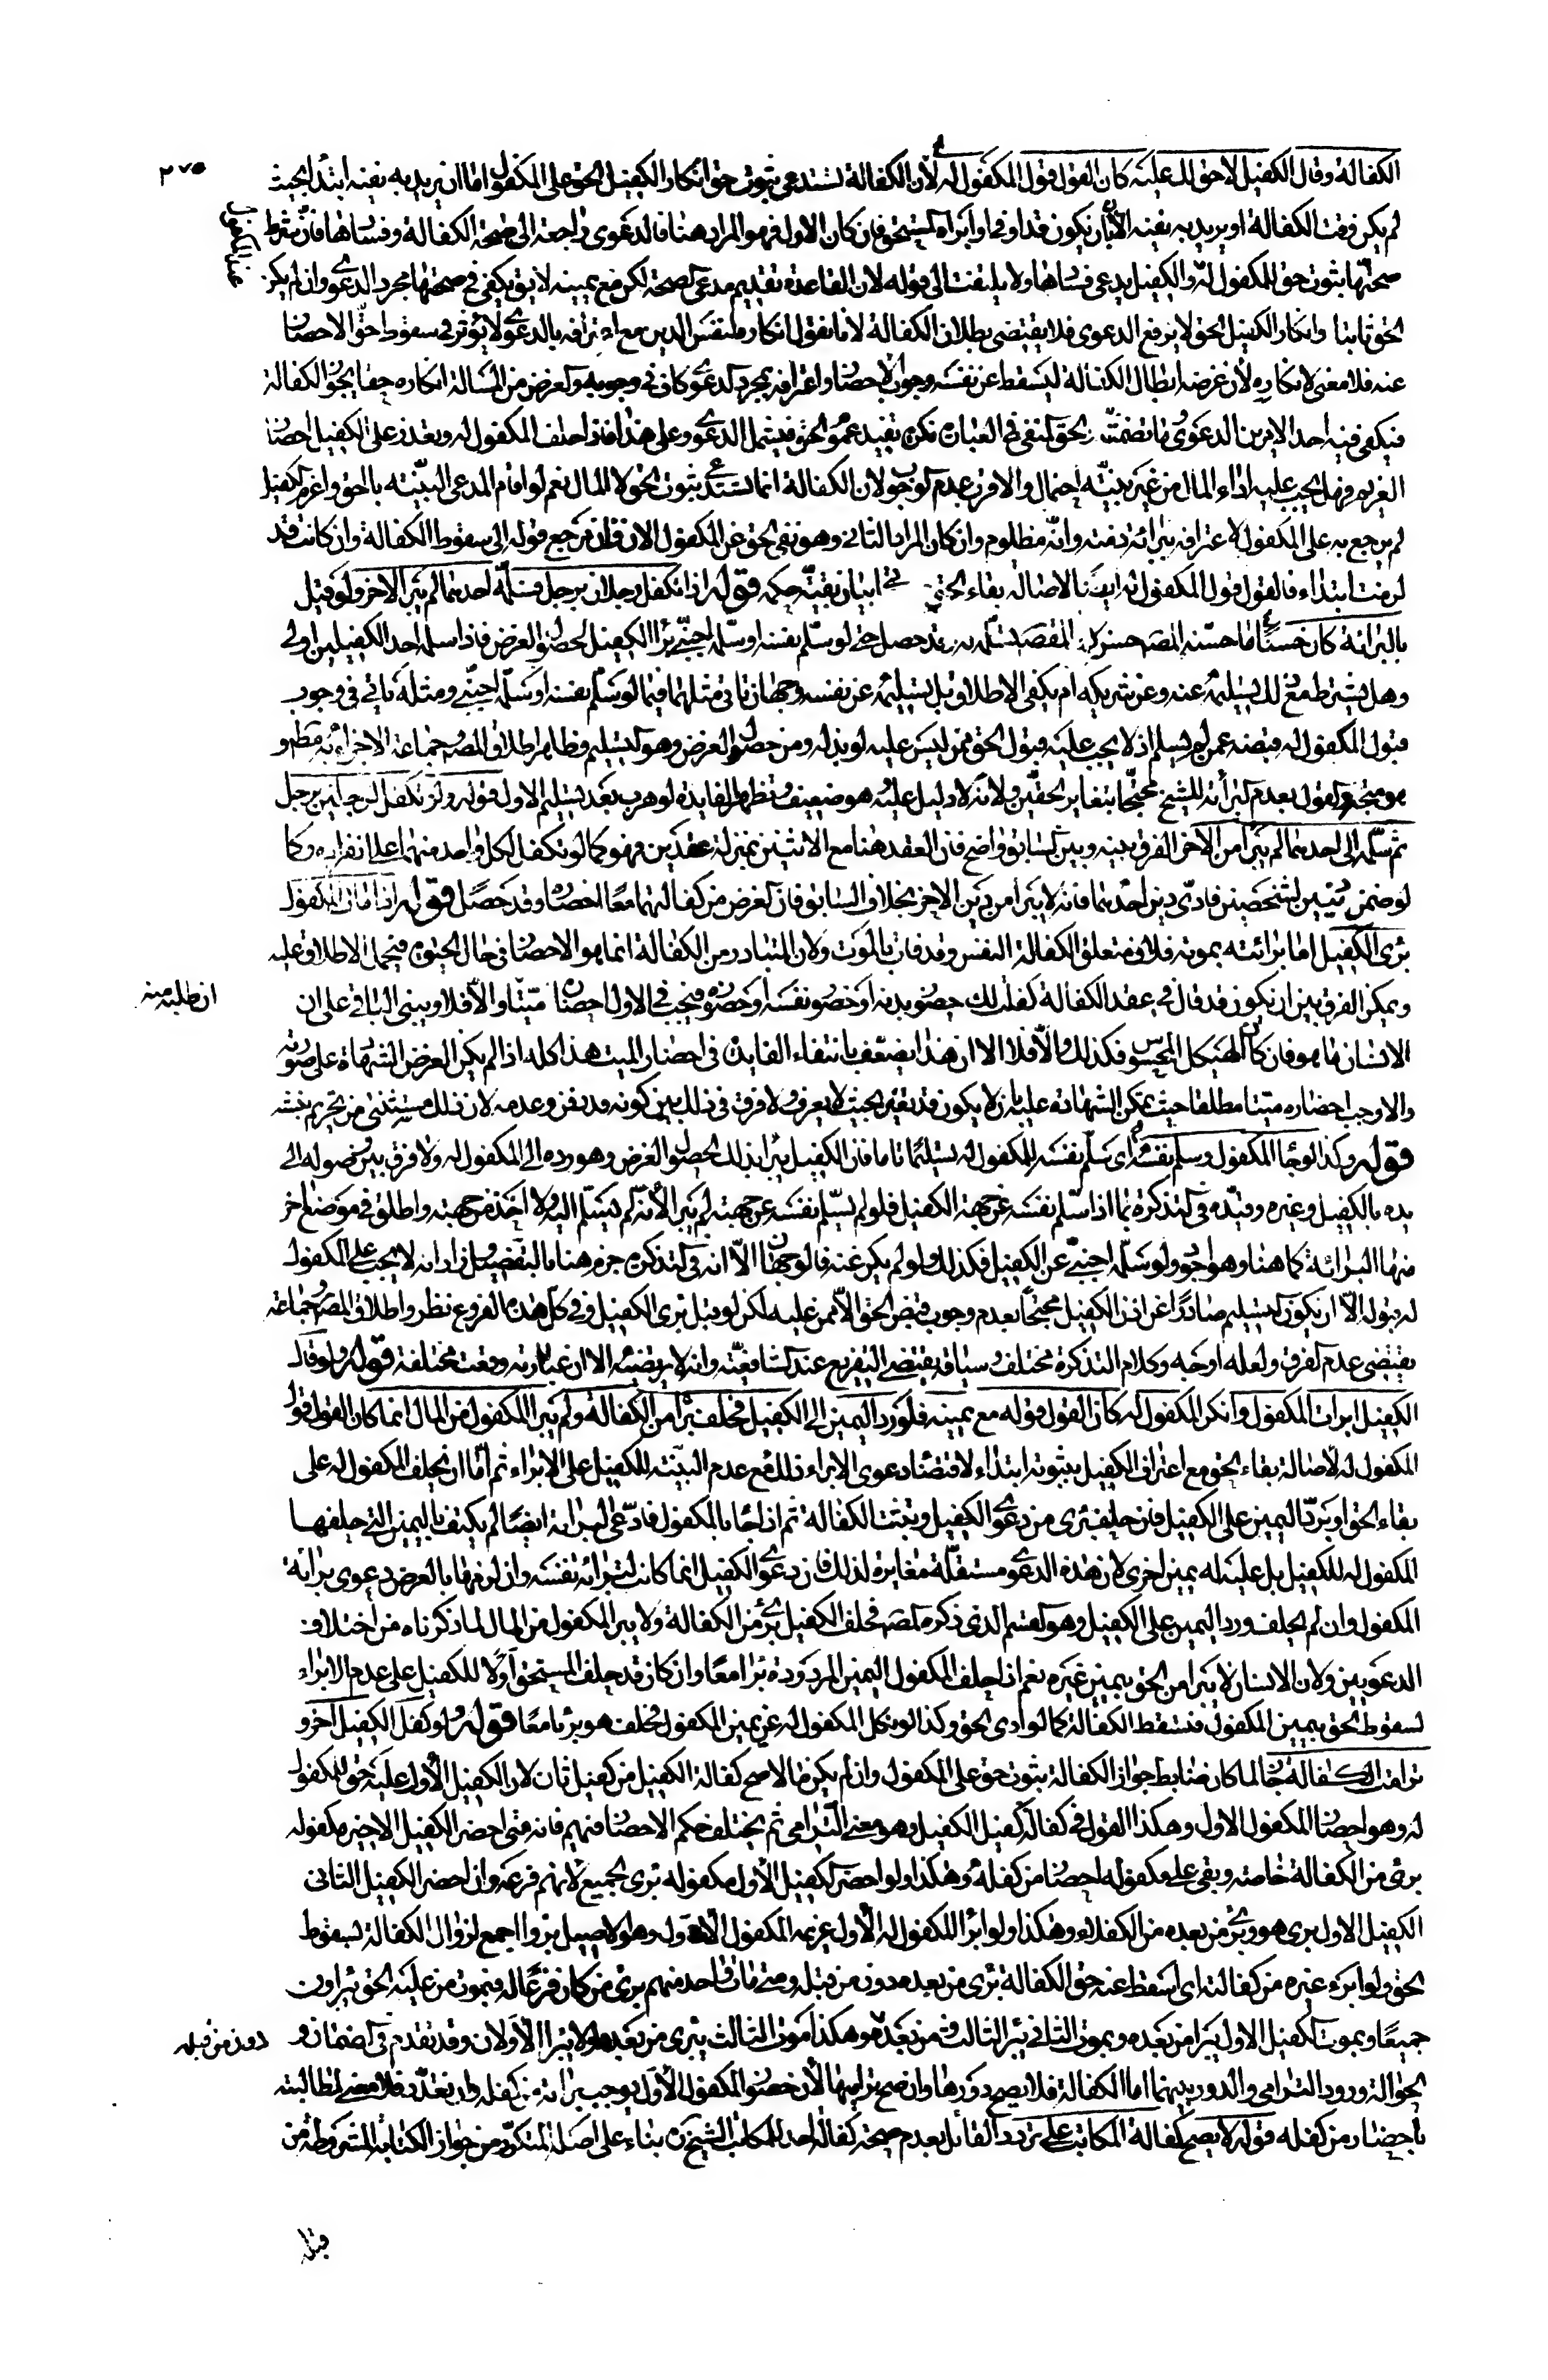 ٢٧٥
الكفالة وقال الكفيل لا حق لك عليه كان القول قول المكفول له لان الكفالة تستدعي ثبوت حق انكار الكفيل الحق على المكفول اما ان يريد به نفيه ابتداء بحيث
لم يكن وقت الكفالة او يريد به نفيه الان بان يكون قد اوفى او ابراه المستحق فان كان الاول فهو المراد هنا فالدعوى راجعة الى صحة الكفالة وفسادها فان شرط
صحتها ثبوت حق للمكفول له والكفيل يدعي فسادها ولا يلتفت الى قوله لان القاعدة تقديم مدعي الصحة لكن مع يمينه لا يق يكفي في صحتها مجرد الدعوى وان لم يكن
الحق ثابتا وانكار الكفيل الحق لا يرفع الدعوى فلا يقتضي بطلان الكفالة لانا نقول انكاره لنفس الدين مع اعترافه بالدعوى لا يؤثر في سقوط حق الاحضار
عنه فلا معنى لانكاره لان غرضه ابطال الكفالة ليسقط عن نفسه وجوب الاحضار واعترافه بمجرد الدعوى كاف في وجوبه والغرض من المسالة انكاره حقا يجوز الكفالة
فيكفي فيه احد الامرين الدعوى وما تضمنت الحق المنفي في العبارة نكرة تفيد عموم الحق فيشمل الدعوى وعلى هذا فاذا حلف المكفول له وتعذر على الكفيل احضار
الغريم فهل يجب عليه اداء المال من غير بينة احتمال والاقرب عدم الوجوب لان الكفالة انما تستدعي ثبوت الحق لا المال نعم لو اقام المدعي البينة بالحق واغرم الكفيل
لم يرجع به على المكفول لاعترافه ببرائة ذمته وانه مظلوم وان كان المراد الثاني وهو نفي الحق عن المكفول الان فان مرجع قوله الى سقوط الكفالة وان كانت قد
لزمت ابتداء فالقول قول المكفول له ايضا لاصالة بقاء الحق وياتي بيان بقية حكمه قوله اذا تكفل رجلان برجل فسلمه احدهما لم يبرا الاخر ولو قيل
بالبرائة كان حسنا ما حسنه المصه حسن لان المقصد تسلمه به وقد حصل حتى لو سلم نفسه او سلمه اجنبي برا الكفيل لحصول الغرض فاذا سلمه احد الكفيلين اولى
وهل يشترط مع ذلك تسليمه عنه وعن شريكه ام يكفي الاطلاق بل تسليمه عن نفسه وجهان ياتي مثلهما فيما لو سلم نفسه او سلمه اجنبي ومثله ياتي في وجوب
قبول المكفول له قبضه عمن لم يسلم اذ لا يجب عليه قبول الحق ممن ليس عليه لو بذله ومن حصول الغرض وهو التسليم وظاهر اطلاق المصه وجماعة الاجتزاء به مطلقا و
هو متجه والقول بعدم البرائة للشيخ محتجا بتغاير الحقين ولانه لا دليل عليه هو ضعيف وتظهر الفايدة لو هرب بعد تسليم الاول قوله ولو تكفل لرجلين برجل
ثم سلمه الى احدهما لم يبرا من الاخر الفرق بينه وبين السابق واضح فان العقد هنا مع الاثنين بمنزلة عقدين فهو كما لو تكفل لكل واحد منهما على انفراده وكما
لو ضمن دينين لشخصين فادى دين احدهما فانه لا يبرا من دين الاخر بخلاف السابق فان الغرض من كفالتهما معا احضاره وقد حصل قوله اذا مات المكفول
برئ الكفيل اما برائته بموته فلان متعلق الكفالة النفس وقد فات بالموت ولان المتبادر من الكفالة انما هو الاحضار في حال الحيوة فيحمل الاطلاق عليه
ويمكن الفرق بين ان يكون قد قال في عقد الكفالة كفلت لك حضور بدنه او حضور نفسه او حضوره فيجب في الاول احضاره ميتا والا فلا ويبنى الباقي على ان
ان طلبه منه
الانسان ما هو فان كان الهيكل المحسوس فكذلك والا فلا الا ان هذا يضعف بانتفاء الفايدة في احضار الميت هذا كله اذا لم يكن الغرض الشهادة على صورته
والا وجب احضاره ميتا مطلقا حيث يمكن الشهادة عليه بان لا يكون قد تغير بحيث لا يعرف ولا فرق في ذلك بين كونه قد دفن وعدمه لان ذلك مستثنى من تحريم نبشه
قوله وكذا لو جا المكفول وسلم نفسه اي سلم نفسه للمكفول له تسليما تاما فان الكفيل يبرا بذلك لحصول الغرض وهو رده الى المكفول له ولا فرق بين وصوله الى
يده بالكفيل وغيره وقيده في التذكرة بما اذا سلم نفسه عن جهة الكفيل فلو لم يسلم نفسه عن جهته لم يبرا لانه لم يسلمه اليه ولا احد من جهته واطلق في موضع اخر
منها البرائة كما هنا وهو اجود ولو سلمه اجنبي عن الكفيل فكذلك ولو لم يكن عنه فالوجهان الا انه في التذكرة جزم هنا بالتفصيل وزاد انه لا يجب على المكفول
له قبوله الا ان يكون التسليم صادرا عن اذن الكفيل محتجا بعدم وجوب قبض الحق الا ممن عليه لكن لو قبل برئ الكفيل وفي كل هذه الفروع نظر واطلاق المصه وجماعة
يقتضي عدم الفرق ولعله اوجه وكلام التذكرة مختلف وسياقه يقتضي التفريع عند الشافعية وانه لا يرتضيه الا ان عبارته وقعت مختلفة قوله ولو قال
الكفيل ابرات المكفول وانكر المكفول له كان القول قوله مع يمينه فلو رد اليمين الى الكفيل فحلف برا من الكفالة ولم يبرا المكفول من المال انما كان القول قول
المكفول له لاصالة بقاء الحق مع اعتراف الكفيل بثبوته ابتداء لاقتضاء دعوى الابراء ذلك مع عدم البينة للكفيل على الابراء ثم اما ان يحلف المكفول له على
بقاء الحق او يرد اليمين على الكفيل فان حلف برئ من دعوى الكفيل وتثبت الكفالة ثم اذا جا بالمكفول فادعى البرائة ايضا لم يكتف باليمين التي حلفها
المكفول له للكفيل بل عليه له يمين اخرى لان هذه الدعوى مستقلة مغايرة لذلك فان دعوى الكفيل انما كانت لتبرائة نفسه وان لزمها بالعرض دعوى برائة
المكفول وان لم يحلف ورد اليمين على الكفيل وهو القسم الذي ذكره المصه فحلف الكفيل برئ من الكفالة ولا يبرا المكفول من المال لما ذكرناه من اختلاف
الدعويين ولان الانسان لا يبرا من الحق بيمين غيره نعم اذا حلف المكفول اليمين المردودة برا معا وان كان قد حلف المستحق اولا للكفيل على عدم الابراء
لسقوط الحق بيمين المكفول فتسقط الكفالة كما لو ادى الحق وكذا لو نكل المكفول له عن يمين المكفول فحلف هو برئا معا قوله ولو كفل الكفيل اخر و
ترامت الكفالة جاز لما كان ضابط جواز الكفالة ثبوت حق على المكفول وان لم يكن مالا صح كفالة الكفيل من كفيل ثان لان الكفيل الاول عليه حق للمكفول
له وهو احضار المكفول الاول وهكذا القول في كفالة كفيل الكفيل وهو معنى الترامي ثم يختلف حكم الاحضار فيهم فانه متى احضر الكفيل الاخير مكفوله
برئ من الكفالة خاصة وبقي على مكفوله احضار من كفله وهكذا ولو احضر الكفيل الاول مكفوله برئ الجميع لانهم فرعه وان احضر الكفيل الثاني
الكفيل الاول برئ هو وبرئ من بعده من الكفلاء وهكذا ولو ابرا المكفول له الاول غريمه المكفول الاول وهو الاصيل برؤا اجمع لزوال الكفالة لسقوط
الحق ولو ابرء غيره من كفالته اي اسقط عنه حق الكفالة برئ من بعده دون من قبله ومتى مات واحد منهم برئ من كان فرعا له فبموت من عليه الحق يبراون
جميعا وبموت الكفيل الاول يبرا من بعده وبموت الثاني يبرا الثالث ومن بعده وهكذا وموت الثالث يبرى من بعده ولا يبرا الاولان وقد تقدم في الضمان و
دون من قبله
الحوالة ورود الترامي والدور بينهما اما الكفالة فلا يصح دورها وان صح تراميها لان حضور المكفول الاول يوجب برائة من كفله وان تعدد فلا معنى لمطالبته
باحضار من كفله قوله لا يصح كفالة المكاتب على تردد القائل بعدم صحة كفالة احد للمكاتب الشيخ ره بناء على اصله المتكرر من جواز الكتابة المشروطة من
قبل